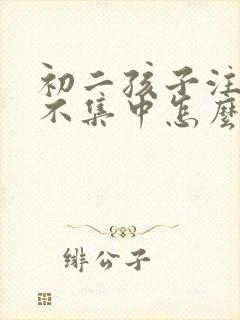 初二孩子注
不集中怎麼
绯公子